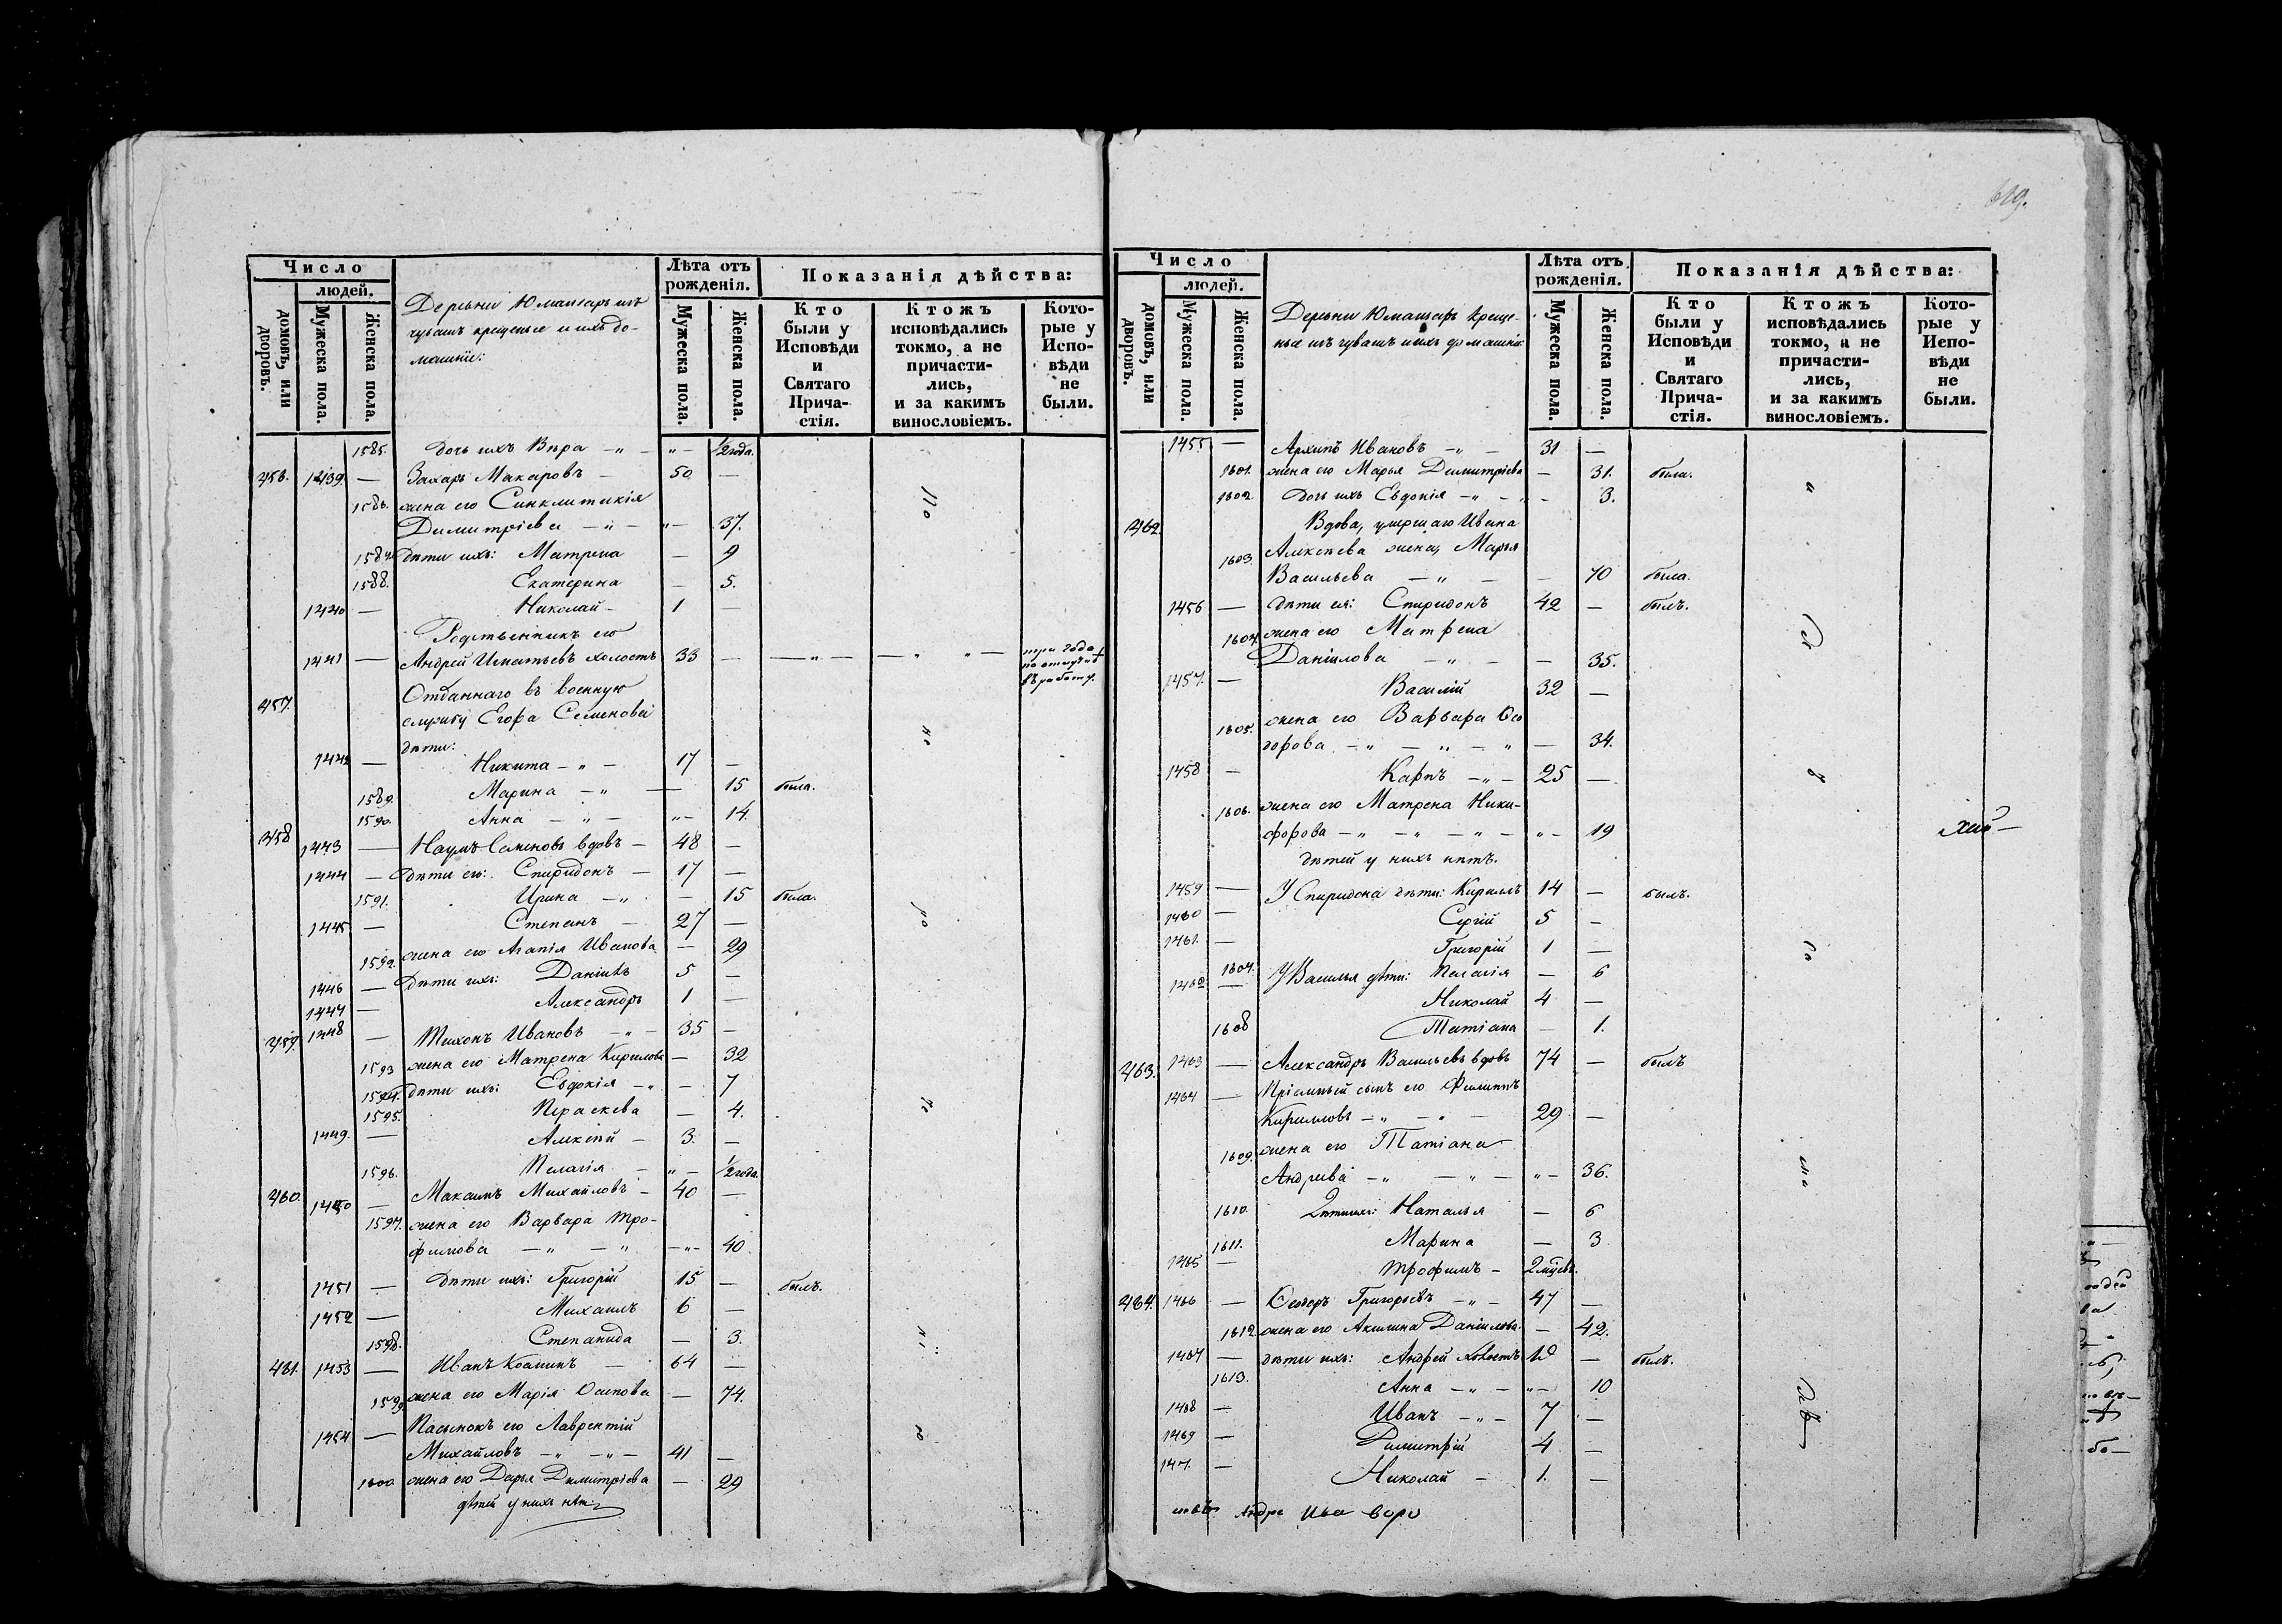 Число
людей.
домовъ, или дворовъ.
Мужеска пола.
Женска пола.
Деревни Юмашевъ изъ
чувашъ крещеные и ихъ до-
машніе:
Лѣта отъ рожденія.
Мужеска пола.
Женска пола.
Показанія дѣйства:
Кто были у Исповѣди и Святаго Прича-стія.
Ктожъ исповѣдались токмо, а не причасти-лись, и за какимъ винословіемъ.
Кото-рые у Испо-вѣди не были.
1585. дочь ихъ Вѣра — " — " — 1/2 года.
456. 1439. — Захаръ Макаровъ — 50 —
1586. жена его Синклитикія
Димитріева — " — " — 37.
1587. дѣти ихъ: Матрена — 9
1588. Екатерина — 5.
1440 — Николай — 1 —
Родственникъ его
1441 — Андрей Игнатьевъ холостъ 33 — — " — — " " — три года по отлучкѣ въ работу.
457. Отданнаго въ военную
службу Егора Семенова
дѣти:
1442 — Никита — " — 17 —
1589. Марина — " — 15 была.
1590. Анна — " — " — 14.
458 1443 — Наумъ Семеновъ вдовъ — 48 —
1444 — дѣти его: Спиридонъ — 17 —
1591. Ирина — " — 15 была.
1445 — Степанъ — 27 —
1592. жена его Агапія Иванова — 29
1446 — дѣти ихъ: Даніилъ 5 —
1447 — Александръ 1 —
459. 1448 — Тихонъ Ивановъ — " — 35 —
1593 жена его Матрена Кирилова — 32
1594. дѣти ихъ: Евдокія — " — 7
1595. Параскева — 4.
1449. — Алексѣй — 3. —
1596. Пелагія — " — 1/2 года.
460. 1450 — Максимъ Михайловъ — 40 —
1597. жена его Варвара Тро-
фимова — " — " — " — 40.
1451 — дѣти ихъ: Григорій 15 — былъ.
1452 — Михаилъ 6 —
1598. Степанида — 3.
461. 1453 — Иванъ Козминъ — 64 —
1599 жена его Марія Осипова — 74.
1454 — Пасынокъ его Лаврентій
Михайловъ — " — " — 41 —
1600 жена его Дарья Димитріева — 29
дѣтей у нихъ нѣтъ.
619.
Число
людей.
домовъ, или дворовъ.
Мужеска пола.
Женска пола.
Деревни Юмашевъ креще-
ные изъ чувашъ и ихъ домашніе:
Лѣта отъ рожденія.
Мужеска пола.
Женска пола.
Показанія дѣйства:
Кто были у Исповѣди и Святаго Прича-стія.
Ктожъ исповѣдались токмо, а не причасти-лись, и за какимъ винословіемъ.
Кото-рые у Испо-вѣди не были.
1455 — Архипъ Ивановъ — " — 31 —
1601. жена его Марья Димитріева — 31. была.
1602 дочь ихъ Евдокія — " — 3.
462. Вдова, умершаго Ивана
1603. Алексѣева жена, Марья
Васильева — " — — 70 была.
1456 — дѣти ея: Спиридонъ 42 — былъ.
1604. жена его Матрена
Даніилова — " — — 35.
1457. — Василій 32 —
1605. жена его Варвара Ѳео
дорова — " — " — " — 34.
1458 — Карпъ — " — 25 —
1606. жена его Матрена Ники-
форова — " — " — " — " — 19
дѣтей у нихъ нѣтъ.
1459 — У Спиридона дѣти: Кириллъ 14 — былъ.
1460 — Сергій 5 —
1461. — Григорій 1 —
1607. У Василья дѣти: Пелагія — 6
1462 — Николай 4 —
1608 Татіана — 1.
463. 1463 — Александръ Васильевъ вдовъ 74 — былъ
1464 — Пріемный сынъ его Филиппъ
Кирилловъ — " — " — 29 —
1609. жена его Татіана
Андреева — " — " — " — 36.
1610. Дѣти ихъ: Наталья — 6
1611. Марина — 3
1465 — Трофимъ — 2 мѣсяц.
464. 1466 — Ѳеодоръ Григорьевъ — " — 47 —
1612 жена его Акилина Даніилова — 42.
1467 — дѣти ихъ: Андрей холостъ — былъ.
1613. Анна — " — " — 10
1468 — Иванъ — " — 7 —
1469 — Димитрій 4 —
147. — Николай — 1. —